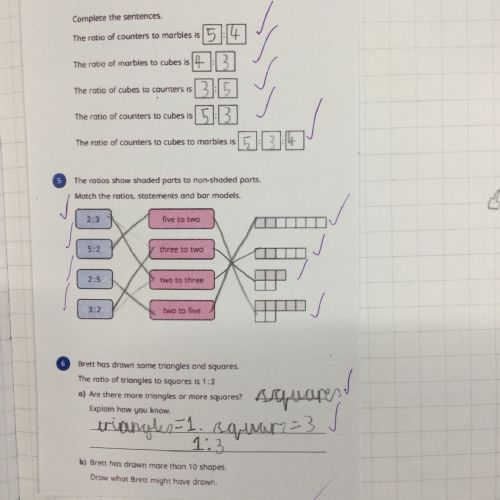 Complete the sentences.
The ratio of counters to marbles is 5 : 4
The ratio of marbles to cubes is 4 : 3
The ratio of cubes to counters is 3 : 5
The ratio of counters to cubes is 5 : 3
The ratio of counters to cubes to marbles is 5 : 3 : 4
5 The ratios show shaded parts to non-shaded parts.
Match the ratios, statements and bar models.
2:3 five to two
5:2 three to two
2:5 two to three
3:2 two to five
6 Brett has drawn some triangles and squares.
The ratio of triangles to squares is 1:3
a) Are there more triangles or more squares? squares
Explain how you know.
triangles=1. squars=3
1:3
b) Brett has drawn more than 10 shapes.
Draw what Brett might have drawn.